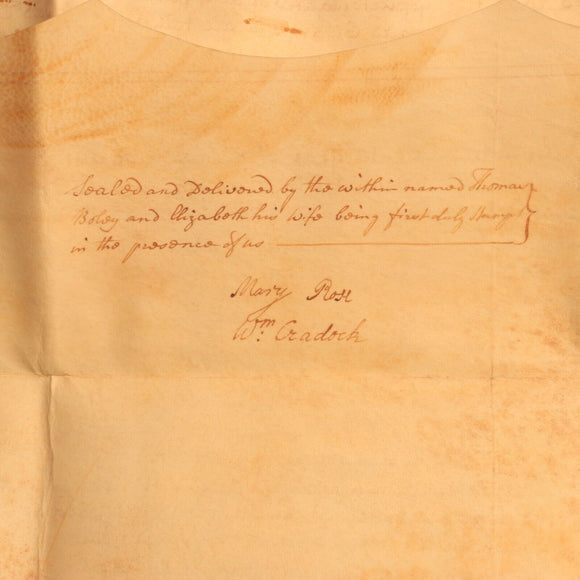 Sealed and Delivered by the within named Thomas
Boley and Elizabeth his Wife being first duly Stampt
in the presence of us
Mary Rose
Wm. Cradock